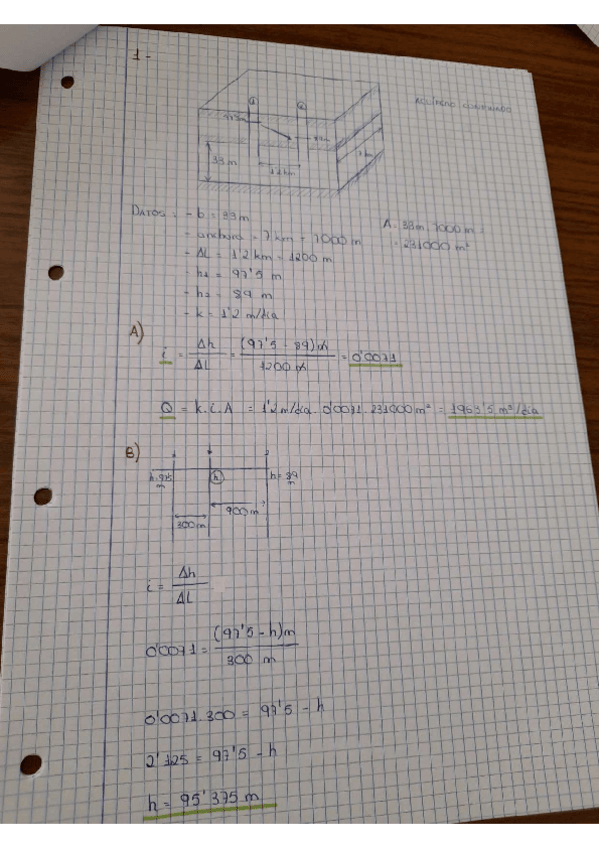 1-
ACUÍFERO CONFINADO
33 m
1'2 km
DATOS: - b = 33 m
- anchura = 7 km = 7000 m
- ΔL = 1'2 km = 1200 m
- h1 = 97'5 m
- h2 = 89 m
- k = 1'2 m/día
A = 33m . 7000 m =
= 231000 m²
A)
i = Δh / ΔL = (97'5 - 89) m / 1200 m = 0'0071
Q = k . i . A = 1'2 m/día . 0'0071 . 231000 m² = 1963'5 m³/día
B)
h=97'5 m
h
h = 89 m
300 m
900 m
i = Δh / ΔL
0'0071 = (97'5 - h) m / 300 m
0'0071 . 300 = 97'5 - h
2'125 = 97'5 - h
h = 95'375 m